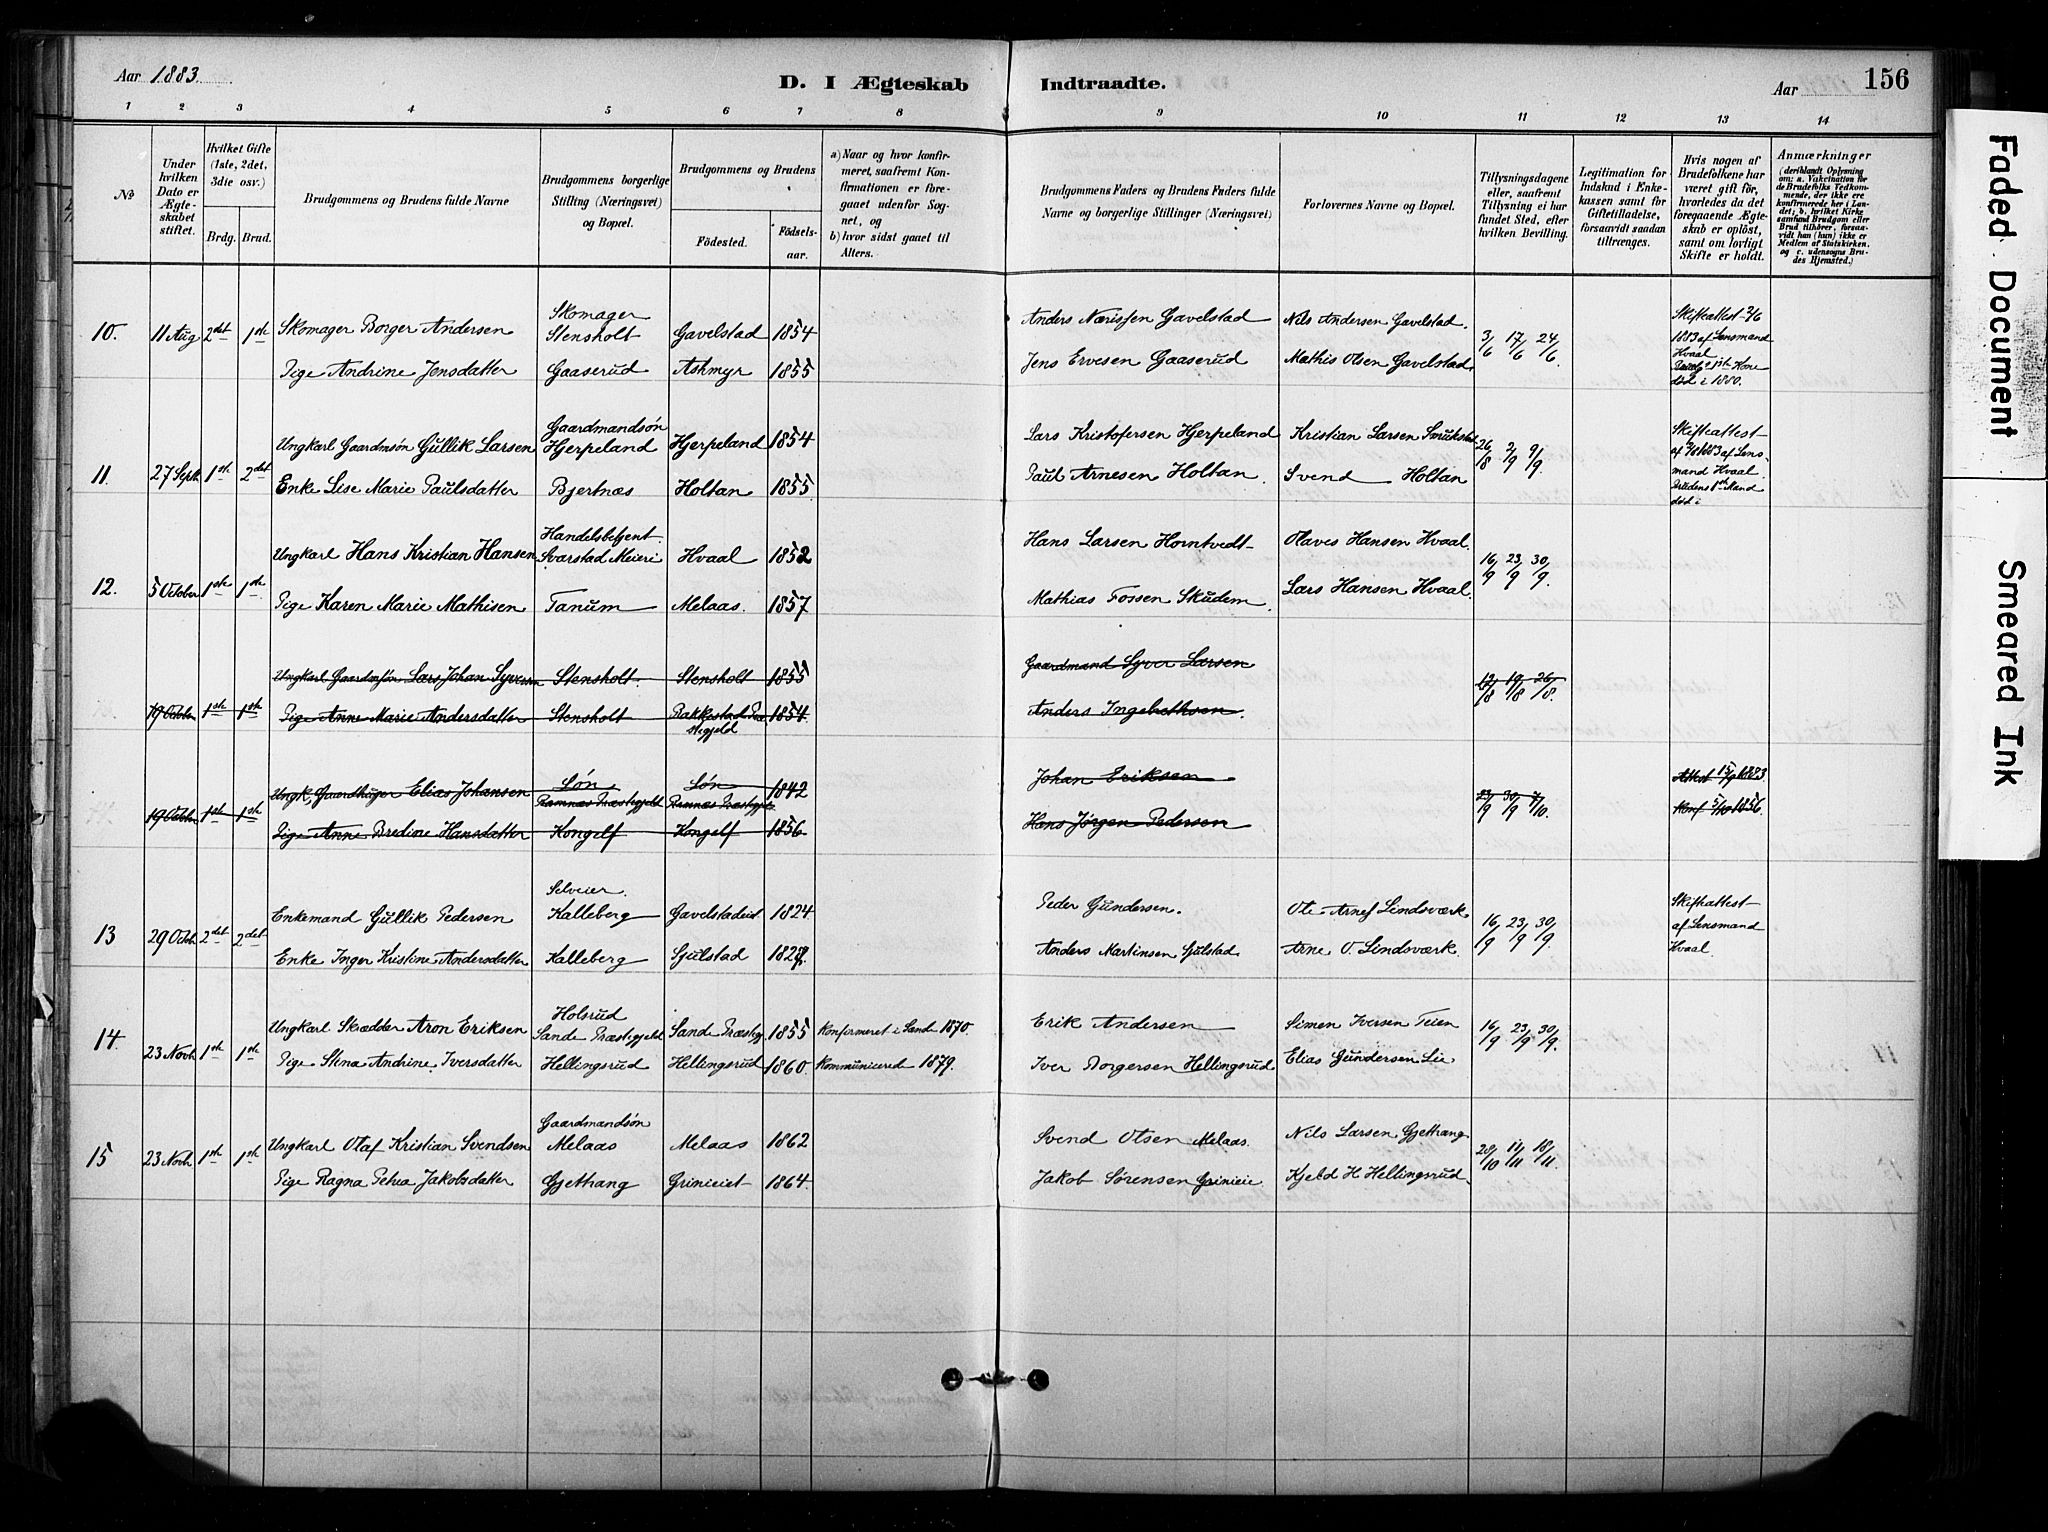 Aar 1883.
D. I Ægteskab Indtraadte.
Aar
156
1 2 3 4 5 6 7 8 9 10 11 12 13 14
No
Under hvilken Dato er Ægteskabet stiftet.
Hvilket Gifte (1ste, 2det, 3die osv.)
Brdg. Brud.
Brudgommens og Brudens fulde Navne
Brudgommens borgerlige Stilling (Næringsvei) og Bopæl.
Brudgommens og Brudens
Födested.
Födselsaar.
a) Naar og hvor konfirmeret, saafremt Konfirmationen er foregaaet udenfor Sognet, og
b) hvor sidst gaaet til Alters.
Brudgommens Faders og Brudens Faders fulde Navne og borgerlige Stillinger (Næringsvei)
Forlovernes Navne og Bopæl.
Tillysningsdagene eller, saafremt Tillysning ei har fundet Sted, efter hvilken Bevilling.
Legitimation for Indskud i Enkekassen samt for Giftetilladelse, forsaavidt saadan tiltrænges.
Hvis nogen af Brudefolkene har været gift før, hvorledes da det foregaaende Ægteskab er oplöst, samt om lovligt Skifte er holdt.
Anmærkninger (deriblandt Oplysning om: a. Vakcination for de Brudefolks Vedkommende, der ikke ere konfirmerede her i Landet; b. hvilket Kirkesamfund Brudgom eller Brud tilhörer, forsaavidt han (hun) ikke er Medlem af Statskirken, og c. udensogns Brudes Hjemsted.)
10. 11 Aug 2det 1ste
Skomager Borger Andersen Skomager Stensholt Gavelstad 1854
Anders Nærissen Gavelstad Nils Andersen Gavelstad. 3/6 17/6 24/6
Skifteattest 2/6 1883 af Lensmand Hvaal
1ste Kone død i 1880.
Pige Andrine Jensdatter Gaaserud Askmyr 1855
Jens Ervesen Gaaserud Mathis Olsen Gavelstad
11. 27 Septb 1ste 2det
Ungkarl Gaardmsøn Gullik Larsen Gaardmandsøn Hjerpeland Hjerpeland 1854
Lars Kristofersen Hjerpeland Kristian Larsen 26/8 2/9 9/9.
Skifteattest af 1883 af Lensmand Hvaal
Brudens 1ste Mand død i
Enke Lise Marie Paulsdatter Bjertnæs Holtan 1855
Paul Arnesen Holtan. Svend Holtan
12. 5 October 1ste 1ste.
Ungkarl Hans Kristian Hansen Handelsbetjent Svarstad Meieri Hvaal 1852
Hans Larsen Horntvedt Olaves Hansen Hvaal. 16/9 23/9 30/9.
Pige Karen Marie Mathisen Tanum Melaas. 1857
Mathias Fossen Skudem. Lars Hansen Hvaal.
19 Octobr 1ste 1ste
Ungkarl Gaardmsøn Lars Johan Syversen Stensholt. Stensholt 1855
Gaardmand Syver Larsen 12/8 19/8 26/8.
Pige Anne Marie Andersdatter Stensholt Bakkestad Præstegjeld 1854.
Anders Ingebrethsen.
19 Octobr 1ste 1ste
Ungk. Elias Johansen Søn Ramnæs Præstegjeld Søn Ramnæs Præstegj 1842
Johan Eriksen 23/9 30/9 7/10.
Attest 15/9 1883
Konf 5/10 1856.
Pige Anne Bredine Hansdatter Kongelf Kongelf 1856
Hans Jørgen Pedersen
13 29 Octobr 2det 2det
Enkemand Gullik Pedersen Selveier. Kalleberg Gavelstadeiet 1824.
Peder Gundersen. Ole Arnes Lindsværk 16/9 23/9 30/9.
Skifteattest af Lensmand Hvaal.
Enke Inger Kristine Andersdatter Kalleberg Sjulstad
Anders Martinsen Sjulstad Arne O. Lindsværk.
14. 23 Novb 1ste 1ste
Ungkarl Skrædder Aron Eriksen Holsrud Sande Præstegjeld Sande Præstegj. 1855 Konfirmeret i Sande 1870.
Erik Andersen Simen Iversen Teien 16/9 23/9 30/9.
Pige Stina Andrine Iversdatter Hellingsrud Hellingsrud 1860. Kommunicerede 1879.
Iver Borgersen Hellingsrud Elias Gundersen Lie
15 23 Novb 1ste 1ste
Ungkarl Olaf Kristian Svendsen Gaardmandsøn Melaas Melaas 1862
Svend Olsen Melaas. Nils Larsen Gjethang 28/10 11/11 18/11.
Pige Ragna Petrea Jakobsdatter Gjethang Grinieiet 1864.
Jakob Sørensen Grinieie Kjeld H Hellingsrud
Faded Document
Smeared Ink